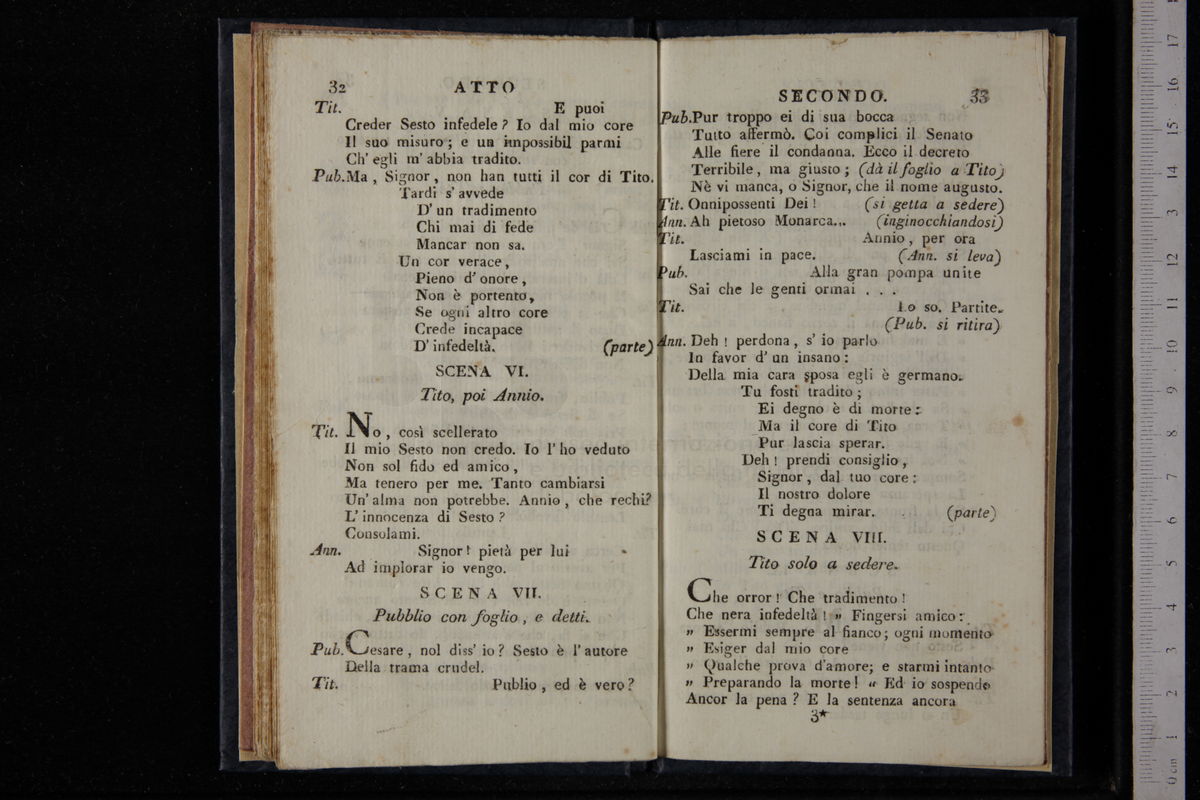 32
ATTO
Tit. E puoi
Creder Sesto infedele? Io dal mio core
Il suo misuro; e un impossibil parmi
Ch' egli m' abbia tradito.
Pub. Ma, Signor, non han tutti il cor di Tito.
Tardi s' avvede
D' un tradimento
Chi mai di fede
Mancar non sa.
Un cor verace,
Pieno d' onore,
Non è portento,
Se ogni altro core
Crede incapace
D' infedeltà. (parte)
SCENA VI.
Tito, poi Annio.
Tit. No, così scellerato
Il mio Sesto non credo. Io l' ho veduto
Non sol fido ed amico,
Ma tenero per me. Tanto cambiarsi
Un' alma non potrebbe. Annio, che rechi?
L' innocenza di Sesto?
Consolami.
Ann. Signor! pietà per lui
Ad implorar io vengo.
SCENA VII.
Pubblio con foglio, e detti.
Pub. Cesare, nol diss' io? Sesto è l' autore
Della trama crudel.
Tit. Publio, ed è vero?
SECONDO.
33
Pub. Pur troppo ei di sua bocca
Tutto affermò. Coi complici il Senato
Alle fiere il condanna. Ecco il decreto
Terribile, ma giusto; (dà il foglio a Tito)
Nè vi manca, o Signor, che il nome augusto.
Tit. Onnipossenti Dei! (si getta a sedere)
Ann. Ah pietoso Monarca... (inginocchiandosi)
Tit. Annio, per ora
Lasciami in pace. (Ann. si leva)
Pub. Alla gran pompa unite
Sai che le genti ormai . . .
Tit. Lo so. Partite.
(Pub. si ritira)
Ann. Deh! perdona, s' io parlo
In favor d' un insano:
Della mia cara sposa egli è germano.
Tu fosti tradito;
Ei degno è di morte:
Ma il core di Tito
Pur lascia sperar.
Deh! prendi consiglio,
Signor, dal tuo core:
Il nostro dolore
Ti degna mirar. (parte)
SCENA VIII.
Tito solo a sedere.
Che orror! Che tradimento!
Che nera infedeltà! „ Fingersi amico:
„ Essermi sempre al fianco; ogni momento
„ Esiger dal mio core
„ Qualche prova d'amore; e starmi intanto
„ Preparando la morte! “ Ed io sospendo
Ancor la pena? E la sentenza ancora
3*